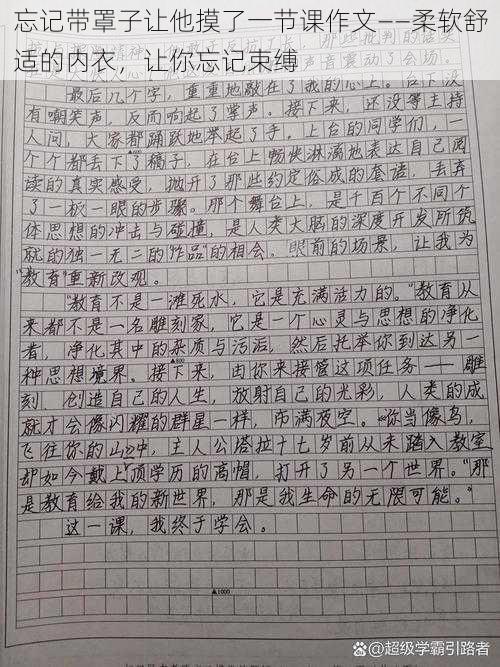 忘记带罩子让他摸了一节课作文——柔软舒
适的内衣，让你忘记束缚
声音震动了会场。
最后几个字，重重地敲在了我的心上。台下没
有嘲笑声，反而响起了掌声。接下来，还没等主持
人问，大家都踊跃地举起了手，上台的同学们，一
个个都丢下了稿子，在台上畅快淋漓地表达自己阅
读的真实感受，抛开了那些约定俗成的套话，丢弃
了一板一眼的步骤。那个舞台上，是千百个不同个
体思想的冲击与碰撞，是人类大脑的深度开发所筑
就的独一无二的“作品”的相会。眼前的场景，让我为
“教育”重新改观。
“教育不是一滩死水，它是充满活力的。”教育从
来都不是一名雕刻家，它是一个心灵与思想的净化
者，净化其中的杂质与污垢，然后托举你到达另一
种思想境界。接下来，由你来接管这项任务——雕
刻，创造自己的人生，放射自己的光彩，人类的成
就才会像闪耀的群星一样，布满夜空。“你当像鸟，
飞往你的山”中，主人公塔拉十七岁前从未踏入教室
却如今戴上顶学历的高帽，打开了另一个世界。“那
是教育给我的新世界，那是我生命的无限可能。”
这一课，我终于学会。
▲800
▲1000
头条 @超级学霸引路者